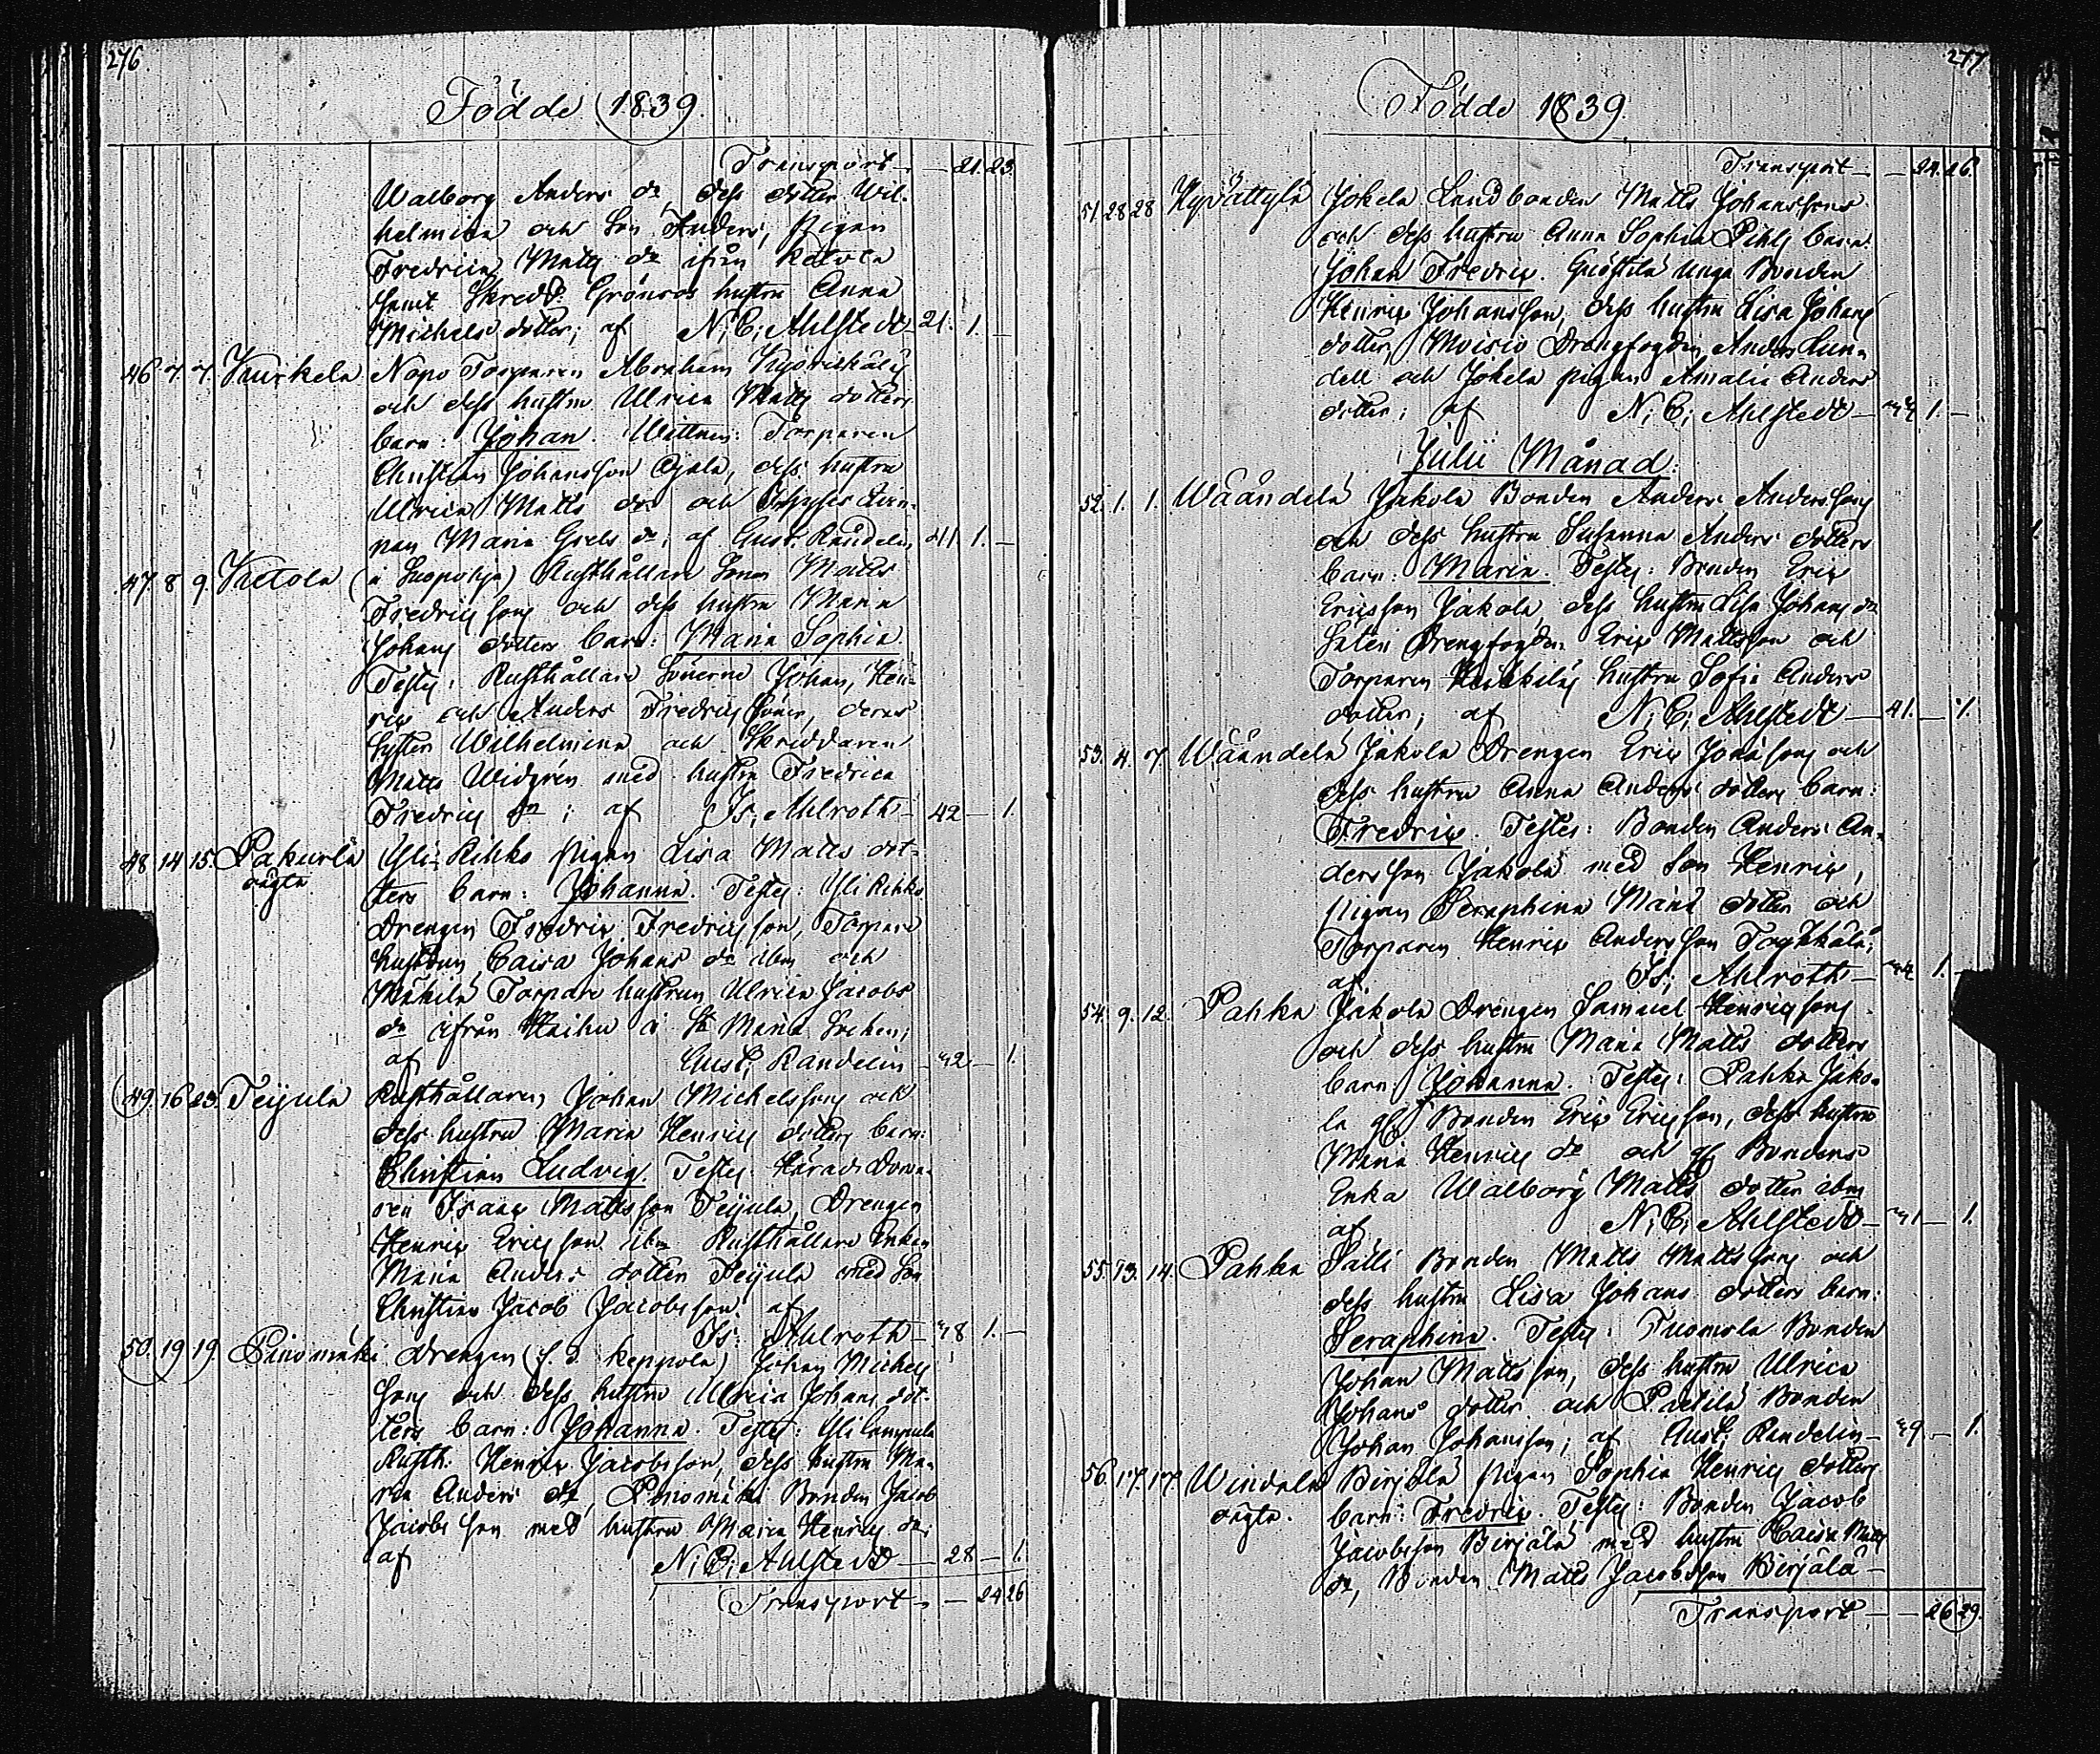 276.
Födde 1839.
Transport — — 21. 23.
Walborg Anders dr, dess dotter Wil-
helmina och Son Anders, Pigan
Fredrica Matts dr ifrån Ketola
samt Skredd. Grönroos hustru Anna
Michels dotter; af N; C; Ahlstedt 21. 1. —
46. 7. 7. Kurkela Napo Torparen Abraham
och dess hustru Ulrica Matts dotters
barn: Johan. Wittnen: Torparen
Christian Johansson Ojala, dess hustru
Ulrica Matts dr och
Maria Grels dr; af Gust. Randelin 41. 1. —
47. 8 9. Ketola (i Suopohja) Rusthållare Sonen Matts
Fredricssons och dess hustru Maria
Johans dotters barn: Maria Sophia.
Testes: Rusthållare Sönerne Johan, Hen-
ric och Anders Fredricssöner, deras
Syster Wilhelmina och Skräddaren
Matts Widgrén med hustru Fredrica
Fredrics dr; af Is; Ahlroth — 42 — 1.
48. 14. 15. Pakurla Yli-Rihko Pigan Lisa Matts dot-
oägta ters barn: Johanna. Testes: Yli Rihko
Drengen Fredric Fredricsson, Torpare
hustrun Caisa Johans dr ibm och
Mäkilä Torpare hustrun Ulrica Jacobs
dr ifrån i St Maria Socken;
af Gust; Randelin — 42 — 1.
49. 16. 23. Teijula Rusthållaren Johan Michelssons och
dess hustru Maria Henrics dotters barn:
Christian Ludvig. Testes: Härads Doma-
ren Isaac Mattsson Teijula, Drengen
Henric Ericsson ibm Rusthållare Enkan
Maria Anders dotter Teijula med Son
Christian Jacob Jacobsson; af
Is: Ahlroth — 48 1. —
50. 19. 19. Pinomäki Drengen (f. d. Keppola) Johan Michels
sons och dess hustru Maria Johans dot-
ters barn: Johanna. Testes: Yli Lempula
Rusth: Henric Jacobsson, dess hustru Ma-
ria Anders dr, Pinomäki Bonden Jacob
Jacobsson med hustru Maria Henrics dr;
af N; C; Ahlstedt — 28 — 1.
Transport — — 24 26
277.
Födde 1839.
Transport — — 24. 26.
51. 28 28 Jokela Landbonden Matts Johanssons
och dess hustru Anna Sophia Pihls barn:
Johan Fredric. unga Bonden
Henric Johansson, dess hustru Lisa Johans
dotter, Moisio Drengfogden Anders Lun-
dell och Jokela pigan Amalia Anders
dotter; af N; C; Ahlstedt — 1. —
Julii Månad.
52. 1. 1. Wäändelä Jakola Bonden Anders Anderssons
och dess hustru Susanna Anders dotters
barn: Maria. Testes: Bonden Eric
Ericsson Jakola, dess hustru Lisa Johans dr
Säteri Drengfogden Eric Mattsson och
Torparen Heikkiläs hustru Sofia Anders
dotter; af N; C; Ahlstedt — 41. — 1.
53. 4. 7 Wäändelä Jakola Drengen Eric Jonassons och
dess hustru Anna Anders dotters barn:
Fredric. Testes: Bonden Anders An-
dersson Jakola med Son Henric,
Pigan Seraphina Maria dotter och
Torparen Henric Andersson
af Is; Ahlroth — 1. —
54. 9. 12. Pahka Jakola Drengen Samuel Henricssons
och dess hustru Maria Matts dotters
barn: Johanna. Testes: Pahka Jako-
la gl. Bonden Eric Ericsson, dess hustru
Maria Henrics dr och gl Bondens
Enka Walborg Matts dotter ibm
af N; C; Ahlstedt — 41 — 1.
55. 13. 14. Pahka Sälli Bonden Matts Mattssons och
dess hustru Lisa Johans dotters barn:
Seraphina. Testes: Tuomola Bonden
Johan Mattsson, dess hustru Ulrica
Johans dotter och Bonden
Johan Johansson; af Gust; Randelin — 1.
56. 17. 17. Windala Pigan Sophia Henrics dotters
oägta. barn: Fredric. Testes: Bonden Jacob
Jacobsson Birjälä med hustru Caisa Matts
dr, Bonden Matts Jacobsson Birjälä —
Transport — — 26 29.